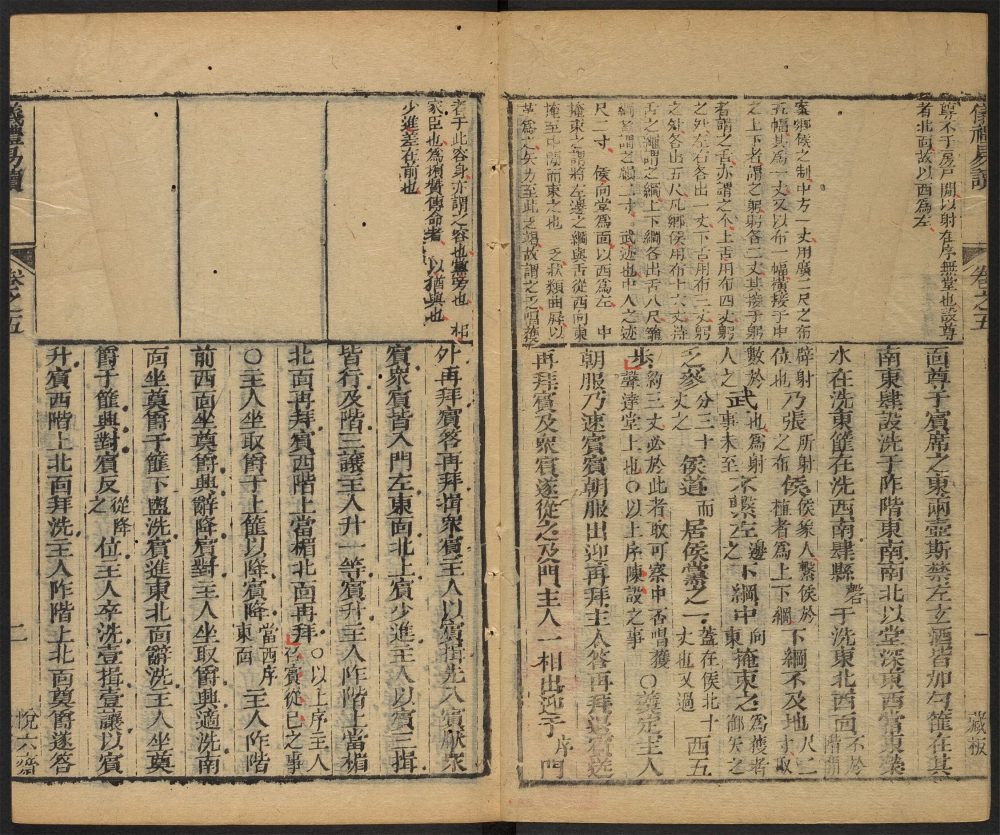 儀禮易讀
卷之五
一
藏板
尊不于房戸間以射在序無堂也設尊
者北面故以西為左
案鄉侯之制中方一丈用廣二尺之布
五幅其為一丈又以布一幅橫接于中
之上下者謂之躬躬各二丈其接于躬
者謂之舌亦謂之个上舌用布四丈躬
之外左右各出一丈下舌用布三丈躬
之外各出五尺凡鄉侯用布十六丈持
舌之繩謂之綱上下綱各出舌八尺籠
綱者謂之縜二寸 武迹也中人之迹
尺二寸 侯向堂為面以西為左 中
掩束之謂將左邊之綱與舌從西向東
掩至中間而束之也 乏狀類曲屏以
革為之矢力至此乏竭故謂之乏唱獲
面尊于賓席之東兩壺斯禁左玄酒皆加勺篚在其
南東肆設洗于阼階東南南北以堂深東西當東榮
水在洗東篚在洗西南肆縣磬于洗東北西面不於階間
辟射位也乃張所射之布侯侯家人繫侯於植者為上下綱下綱不及地尺二寸取
數於人之武也為射事未至不繫左邊之下綱中向東掩束之為獲者御矢之
乏參分三十丈之侯道而居侯黨之一蓋在侯北十丈也又過西五
步約三丈必於此者取可察中否唱獲聲達堂上也○以上序陳設之事○羹定主人
朝服乃速賓賓朝服出迎再拜主人答再拜退賓送
再拜賓及衆賓遂從之及門主人一相出迎于序門
者于此容身亦謂之容也黨旁也 相
家臣也為擯贊傳命者 以猶與也
少進差在前也
外再拜賓答再拜揖衆賓主人以賓揖先入賓厭衆
賓衆賓皆入門左東面北上賓少進主人以賓三揖
皆行及階三讓主人升一等賓升主人阼階上當楣
北面再拜賓西階上當楣北面再拜○以上序主人從賓從己之事
○主人坐取爵于上篚以降賓降當西序東面主人阼階
前西面坐奠爵興辭降賓對主人坐取爵興適洗南
面坐奠爵于篚下盥洗賓進東北面辭洗主人坐奠
爵于篚興對賓反從降之位主人卒洗壹揖壹讓以賓
升賓西階上北面拜洗主人阼階上北面奠爵遂答
儀禮易讀
卷之五
二
悅六齋